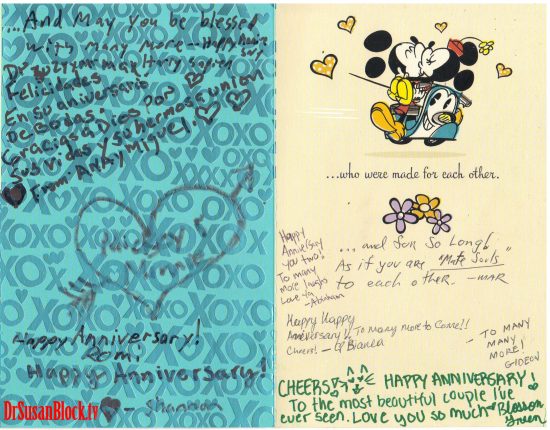 ...And May you be blessed
with many more — Happy
Felicidades
En su aniversario
De Bodas.
Gracias a Dios por
sus vidas y su hermosa union
From: ANA y MIJ
Happy Anniversary!
Romi
Happy Anniversary!
- Shannon
DrSusanBlock.tv
...who were made for each other.
Happy
Anniversary
you two!
To many
more laughs
Love Ya
-Abraham
... and for so long!
As if you are "Mate Souls"
to each other. -MAR
Happy Happy
Anniversary!! To many more to Come!!
Cheers! - Bianca
- TO MANY
MANY
MORE!
GIDEON
CHEERS! HAPPY ANNIVERSARY!
To the most beautiful couple I've
ever seen. Love you so much - Blosson
Green